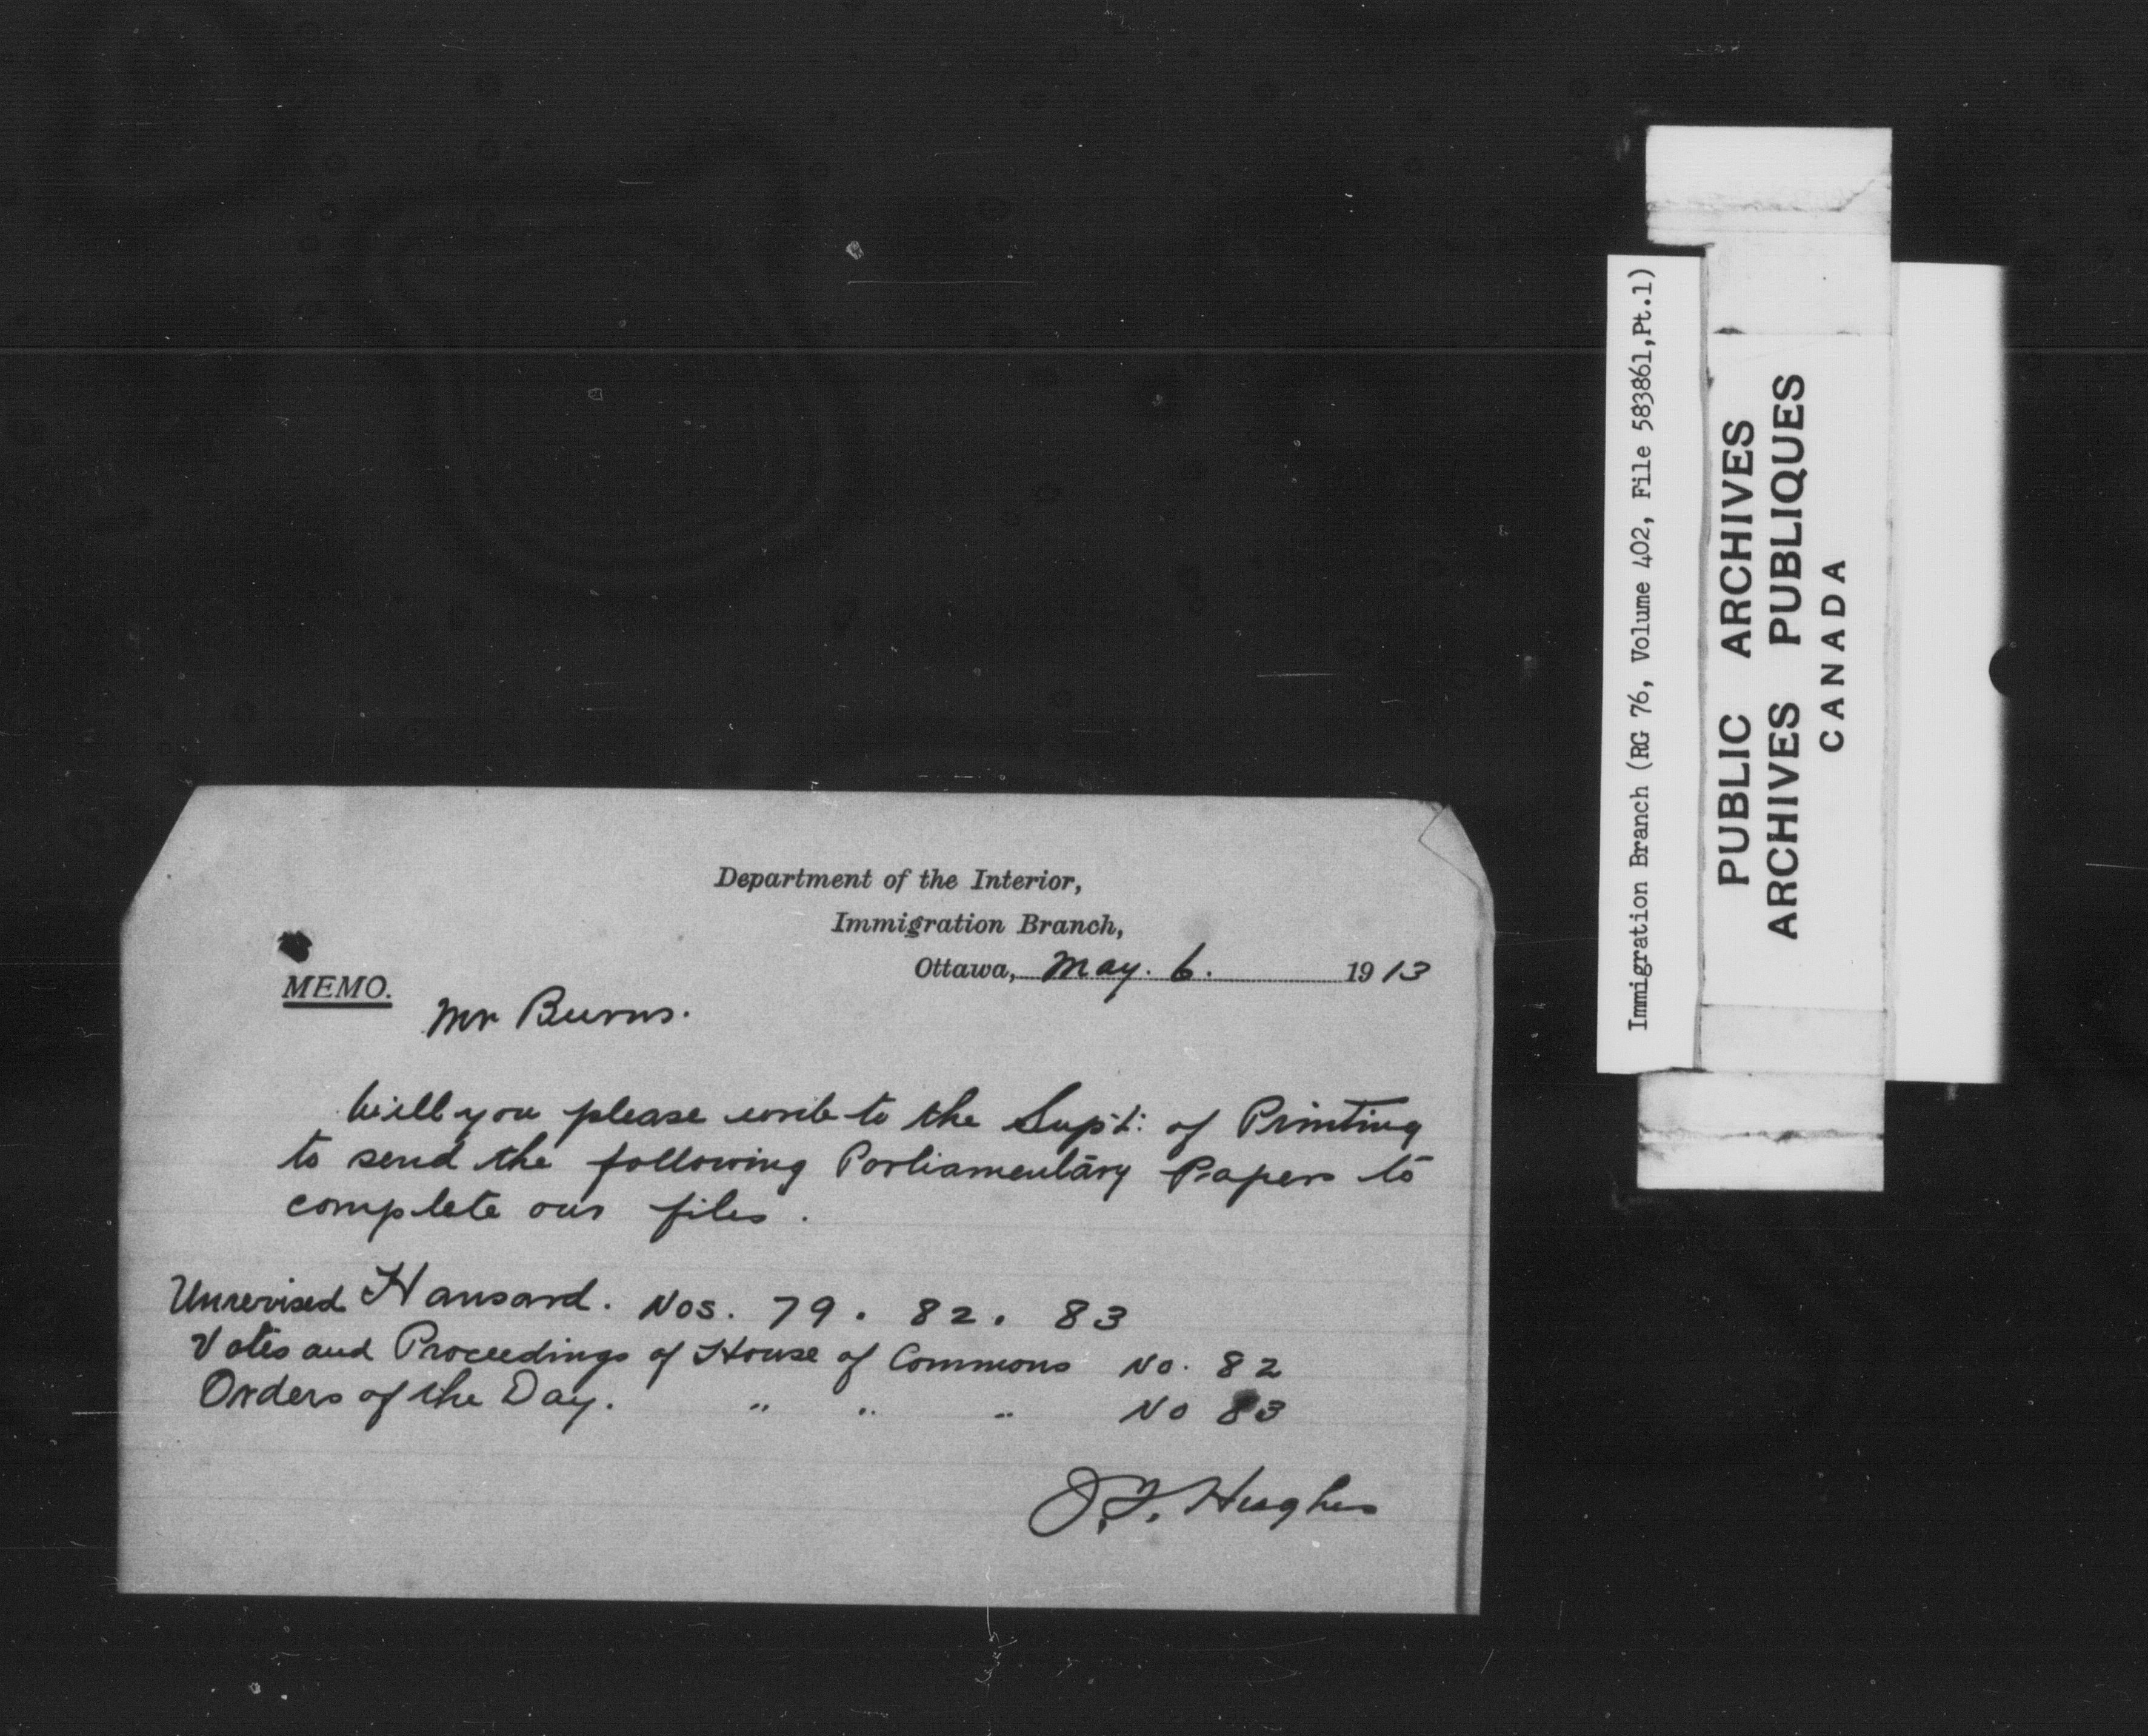 Department of the Interior,
Immigration Branch,
Ottawa, May. 6. 1913
MEMO.
Mr Burns.
Will you please write to the Supt: of Printing
to send the following Parliamentary Papers to
complete our files.
Unrevised Hansard. Nos. 79. 82. 83
Votes and Proceedings of House of Commons No. 82
Orders of the Day. " " " No 83
J.F. Hughes
Immigration Branch (RG 76, Volume 402, File 583861,Pt.1)
PUBLIC ARCHIVES
ARCHIVES PUBLIQUES
CANADA